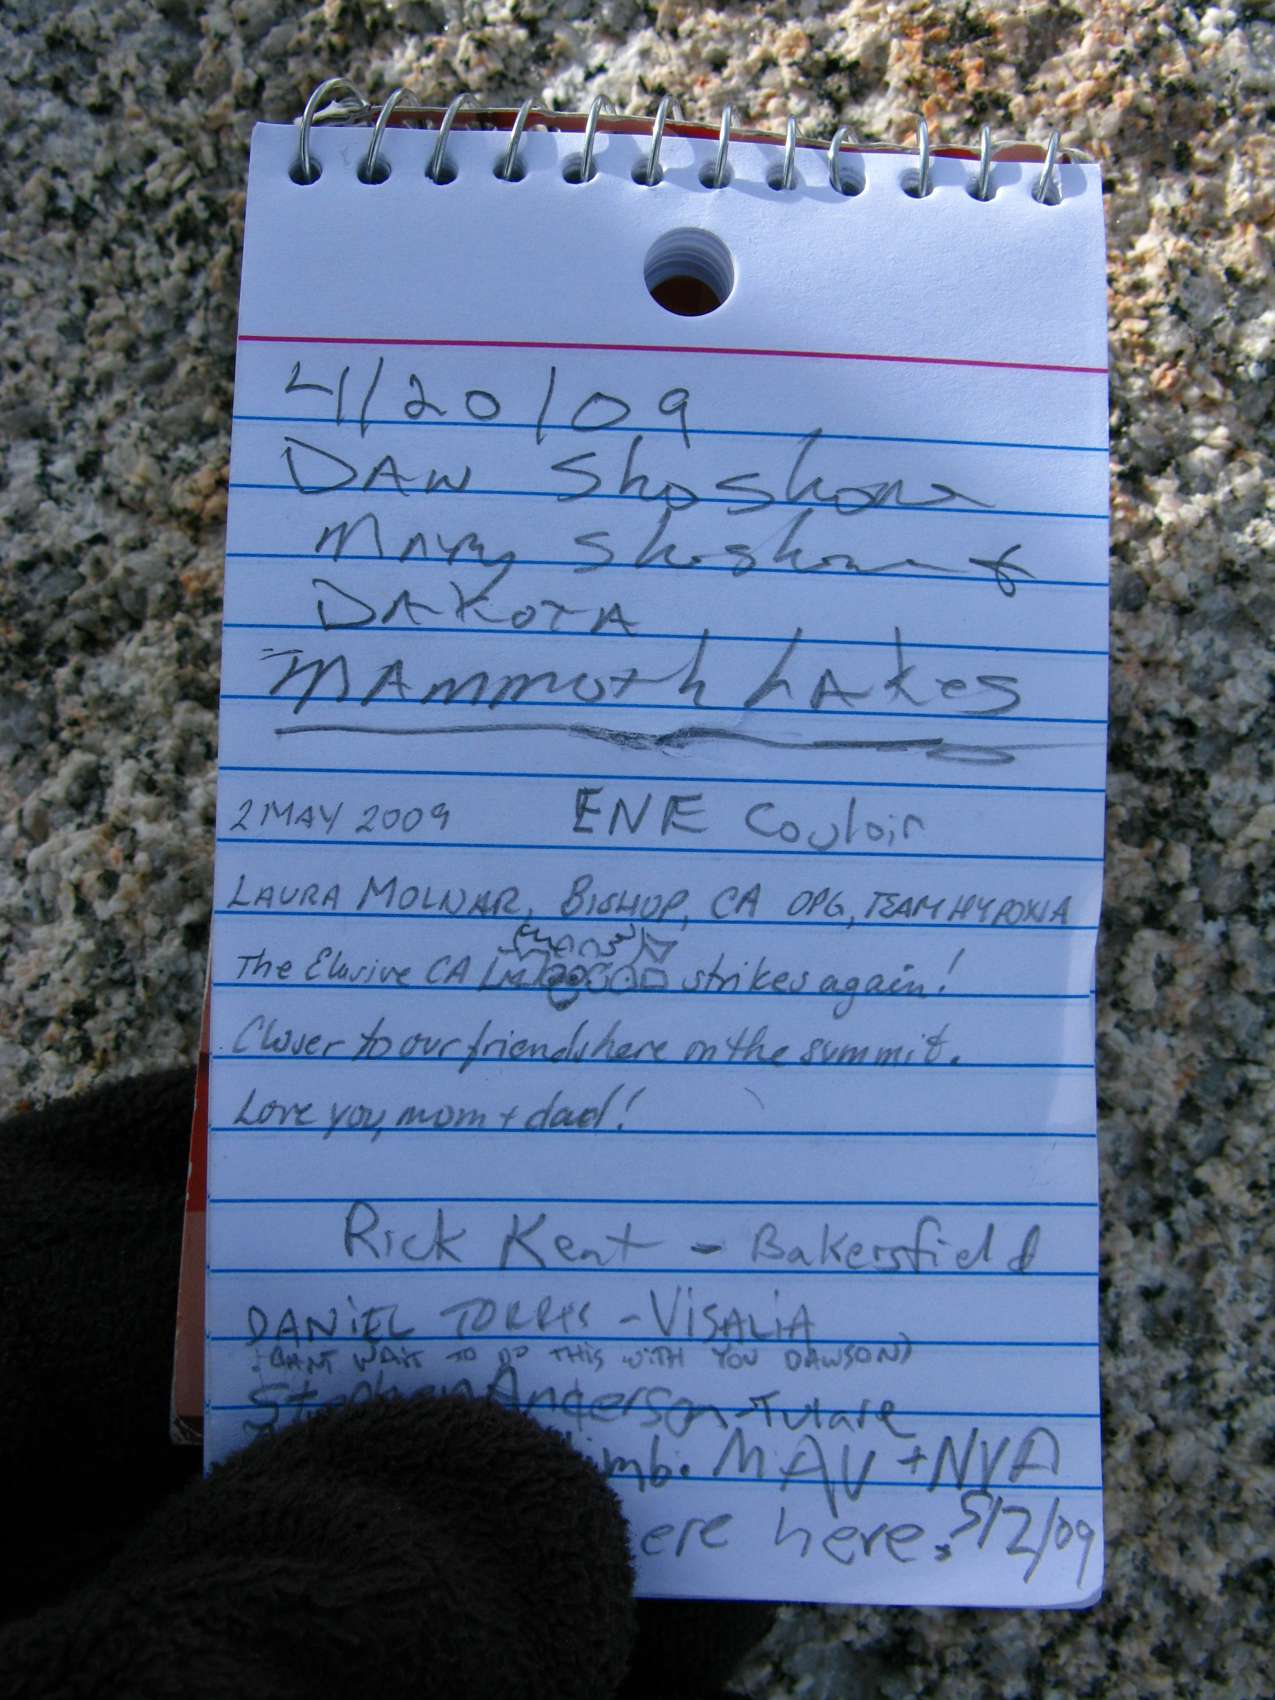 4/20/09
DAW Shoshone
MARY Shoshone &
DAKOTA
MAMMOTH LAKES
2 MAY 2009 ENE Couloir
LAURA MOLNAR, BISHOP, CA OPG, TEAM HYPOXIA
The Elusive CA strikes again!
Closer to our friends here on the summit.
Love you, mom + dad!
Rick Kent - Bakersfield
DANiEL TORRES - VISALiA
(CANT WAIT TO DO THIS WITH YOU DAWSON)
Stephen Anderson - Tulare
imb. MAV + NYA
ere here. 5/2/09